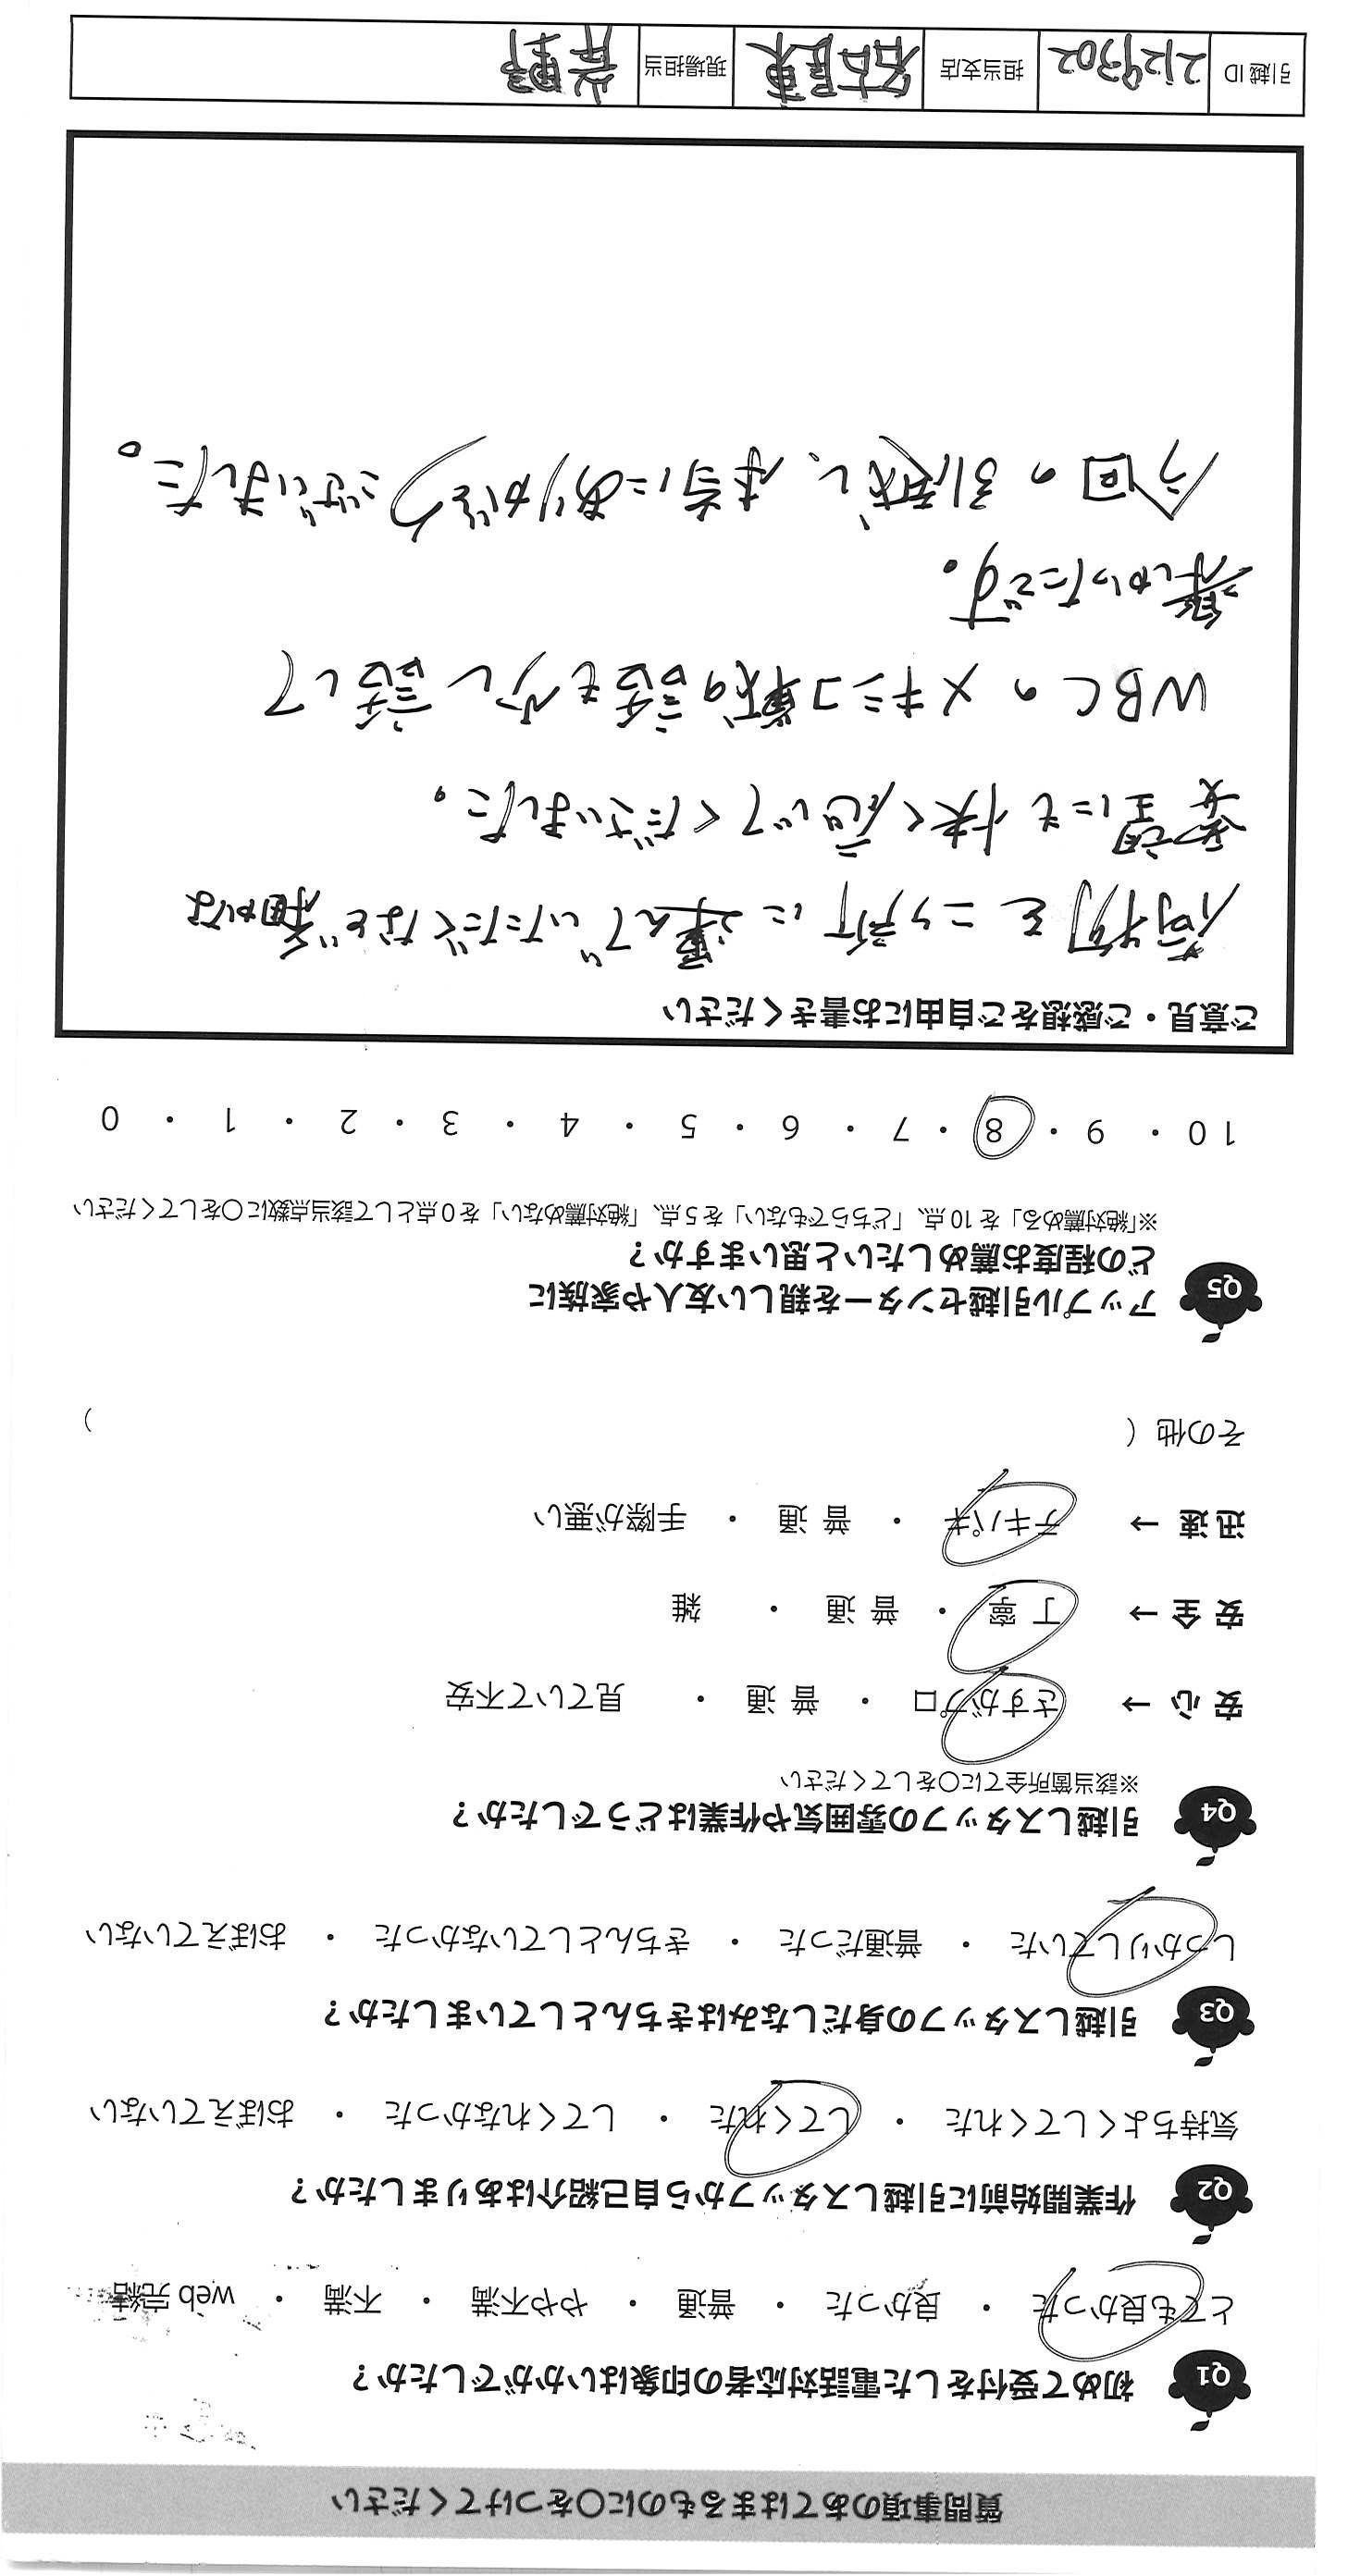 質問事項のあてはまるものに○をつけてください
Q1 初めて受付をした電話対応者の印象はいかがでしたか？
とても良かった ・ 良かった ・ 普通 ・ やや不満 ・ 不満 ・ web 完結
Q2 作業開始前に引越しスタッフから自己紹介はありましたか？
気持ちよくしてくれた ・ してくれた ・ してくれなかった ・ おぼえていない
Q3 引越しスタッフの身だしなみはきちんとしていましたか？
しっかりしていた ・ 普通だった ・ きちんとしていなかった ・ おぼえていない
Q4 引越しスタッフの雰囲気や作業はどうでしたか？
※該当箇所全てに○をしてください
安 心 → さすがプロ ・ 普 通 ・ 見ていて不安
安 全 → 丁 寧 ・ 普 通 ・ 雑
迅 速 → テキパキ ・ 普 通 ・ 手際が悪い
その他（ ）
Q5 アップル引越センターを親しい友人や家族に
どの程度お薦めしたいと思いますか？
※「絶対薦める」を 10 点、「どちらでもない」を 5 点、「絶対薦めない」を 0 点として該当点数に○をしてください
10 ・ 9 ・ 8 ・ 7 ・ 6 ・ 5 ・ 4 ・ 3 ・ 2 ・ 1 ・ 0
ご意見・ご感想をご自由にお書きください
荷物を二ヶ所に運んでいただくなど細かな
要望にも快く応じてくださいました。
WBCのメキシコ戦の話も少し話して
楽しかったです。
今回の引越し、本当にありがとうございました。
引越 ID 2129302 担当支店 名古屋東 現場担当 岸野